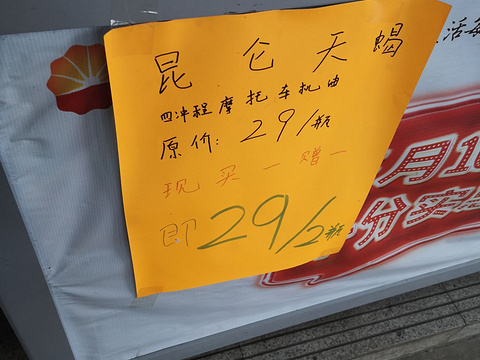 昆仑天蝎
四冲程摩托车机油
原价: 29/瓶
现买一赠一
即29/2瓶
活每
月10
分实